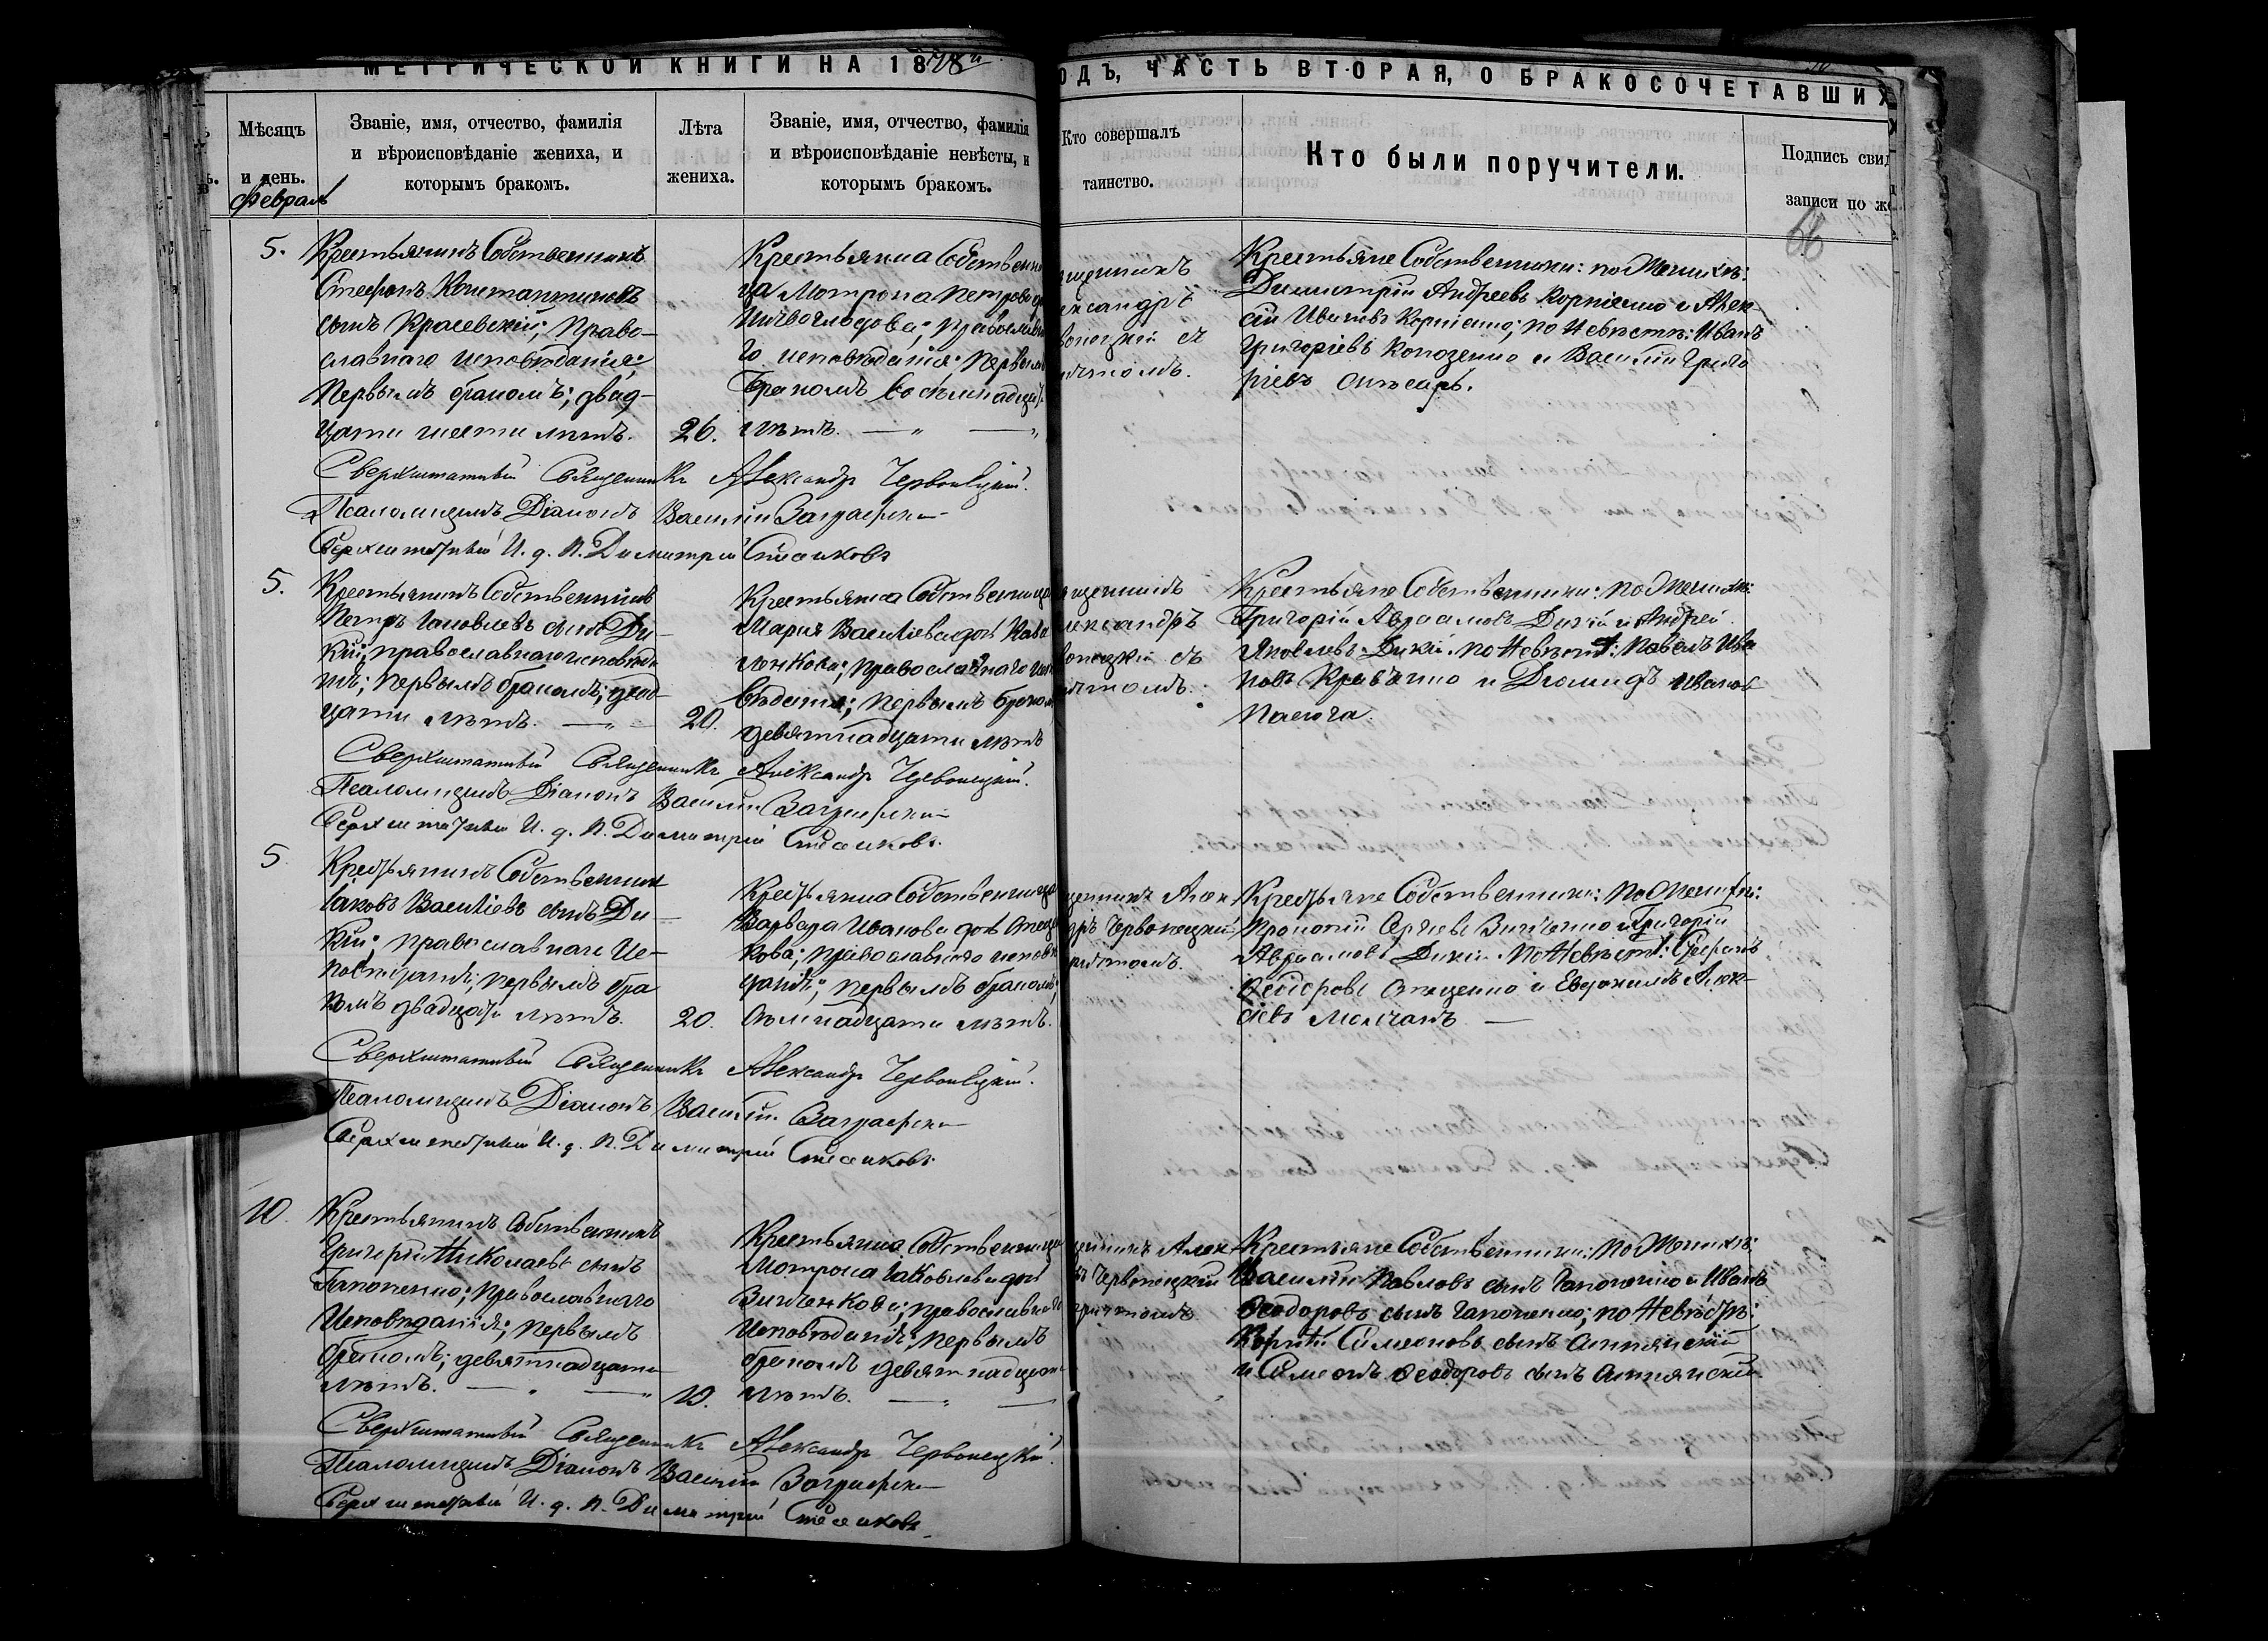 МЕТРИЧЕСКОЙ КНИГИ НА 1878
ОДЪ, ЧАСТЬ ВТОРАЯ, О БРАКОСОЧЕТАВШИХ
Мѣсяцъ
и день.
Февраль
Званіе, имя, отчество, фамилія
и вѣроисповѣданіе жениха, и
которымъ бракомъ.
Лѣта
жениха.
Званіе, имя, отчество, фамилія
и вѣроисповѣданіе невѣсты, и
которымъ бракомъ.
Кто совершалъ
таинство.
Кто были поручители.
Подпись свид
записи по же
68
5.
Крестьянинъ Собственникъ
Стефанъ Константиновъ
сынъ Красевскій; Право-
славнаго исповѣданія;
Первымъ бракомъ; двад-
цати шести лѣтъ.
26.
Крестьянка Собственни
ца Мотрона Петрова до
православна
го исповѣданія; Первымъ
бракомъ восемнадцат
лѣтъ.
щенникъ
ександръ
вонецкій съ
Крестьяне Собственники: по Женихѣ:
Димитрій Андреевъ Корніенко и Алек-
сій Ивановъ Корніенко; по Невѣстѣ: Иванъ
Григоріевъ и Василій Григо
ріевъ
Сверхштатный Священникъ Александръ Червонецкій.
Псаломщикъ Діаконъ Василій Заграфскі
Сверхштатный И. д. П. Димитрій
5.
Крестьянинъ Собственникъ
Петръ Іаковлевъ сынъ Ди-
кій; православнаго исповѣда
нія; первымъ бракомъ; двад-
цати лѣтъ.
20.
Крестьянка Собственница
Марія Васильева дочь
православнаго испо
вѣданія; первымъ браком
девятнадцати лѣтъ
щенникъ
лександръ
вонецкій съ
Крестьяне Собственники: по Женихѣ:
Григорій Авраамовъ Дикій и Андрей
Яковлевъ Дикій. По Невѣстѣ: Павелъ Ива
новъ Кравченко и Діомидъ Иванов
Сверхштатный Священникъ Александръ Червонецкій.
Псаломщикъ Діаконъ Василій Заграфскі
Сверхштатный И. д. П. Димитрій
5
Крестьянинъ Собственник
Іаковъ Васильевъ сынъ Ди-
кій; православнаго Ис-
повѣданія; первымъ бра
комъ двадцати лѣтъ.
20.
Крестьянка Собственница
Варвара Иванова дочь
кова; православнаго исповѣ
данія; первымъ бракомъ;
семнадцати лѣтъ.
щенникъ Алек
дръ Червонецкій
Крестьяне Собственники: По Женихѣ:
Прокопій Сергѣевъ и Григорій
Авраамовъ Дикій. По Невѣстѣ: Стефанъ
Ѳеодоровъ и Евдокимъ Алек-
сѣевъ Молчанъ
Сверхштатный Священникъ Александръ Червонецкій.
Псаломщикъ Діаконъ Василій Заграфскі
Сверхштатный И. д. П. Димитрій
10.
Крестьянинъ Собственникъ
Григорій Николаевъ сынъ
Гапоненко; православнаго
Исповѣданія; первымъ
бракомъ; девятнадцати
лѣтъ.
Крестьянка Собственница
Мотрона Іаковлева дочь
православнаго
Исповѣданія; первымъ
бракомъ девятнадцати
лѣтъ.
щенникъ Алек
ъ Червонецкій
Крестьяне Собственники: по Женихѣ:
Василій Павловъ сынъ Гапоненко и Иванъ
Ѳеодоровъ сынъ Гапоненко; по Невѣстѣ:
Симеоновъ сынъ
и Симеонъ Ѳеодоровъ сынъ
Сверхштатный Священникъ Александръ Червонецкій.
Псаломщикъ Діаконъ Василій Заграфскі
Сверхштатный И. д. П. Димитрій